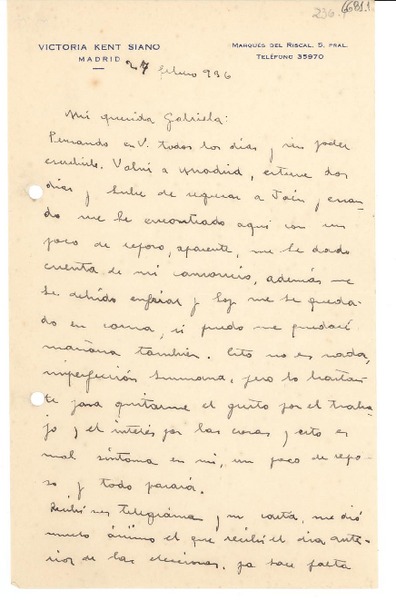 236.
6681.1
VICTORIA KENT SIANO
MADRID
MARQUES DEL RISCAL, 5, PRAL.
TELÉFONO 35970
27 febrero 936
Mi querida Gabriela:
Pensando en V. todos los días y sin poder
escribirle. Volví a Madrid, estuve dos
días y hube de regresar a Jaén, cuan-
do me he encontrado aquí con un
poco de reposo, aparente, me he dado
cuenta de mi cansancio, además me
he debido enfriar y hoy me he queda-
do en cama, si puedo me quedaré
mañana también. Esto no es nada,
imperfección humana, pero lo bastan-
te para quitarme el gusto por el traba-
jo y el interés por las cosas y esto es
mal síntoma en mí, un poco de repo-
so y todo pasará.
Recibí sus telegramas y su carta, me dió
mucho ánimo el que recibí el día ante-
rior de las elecciones, ya hace falta